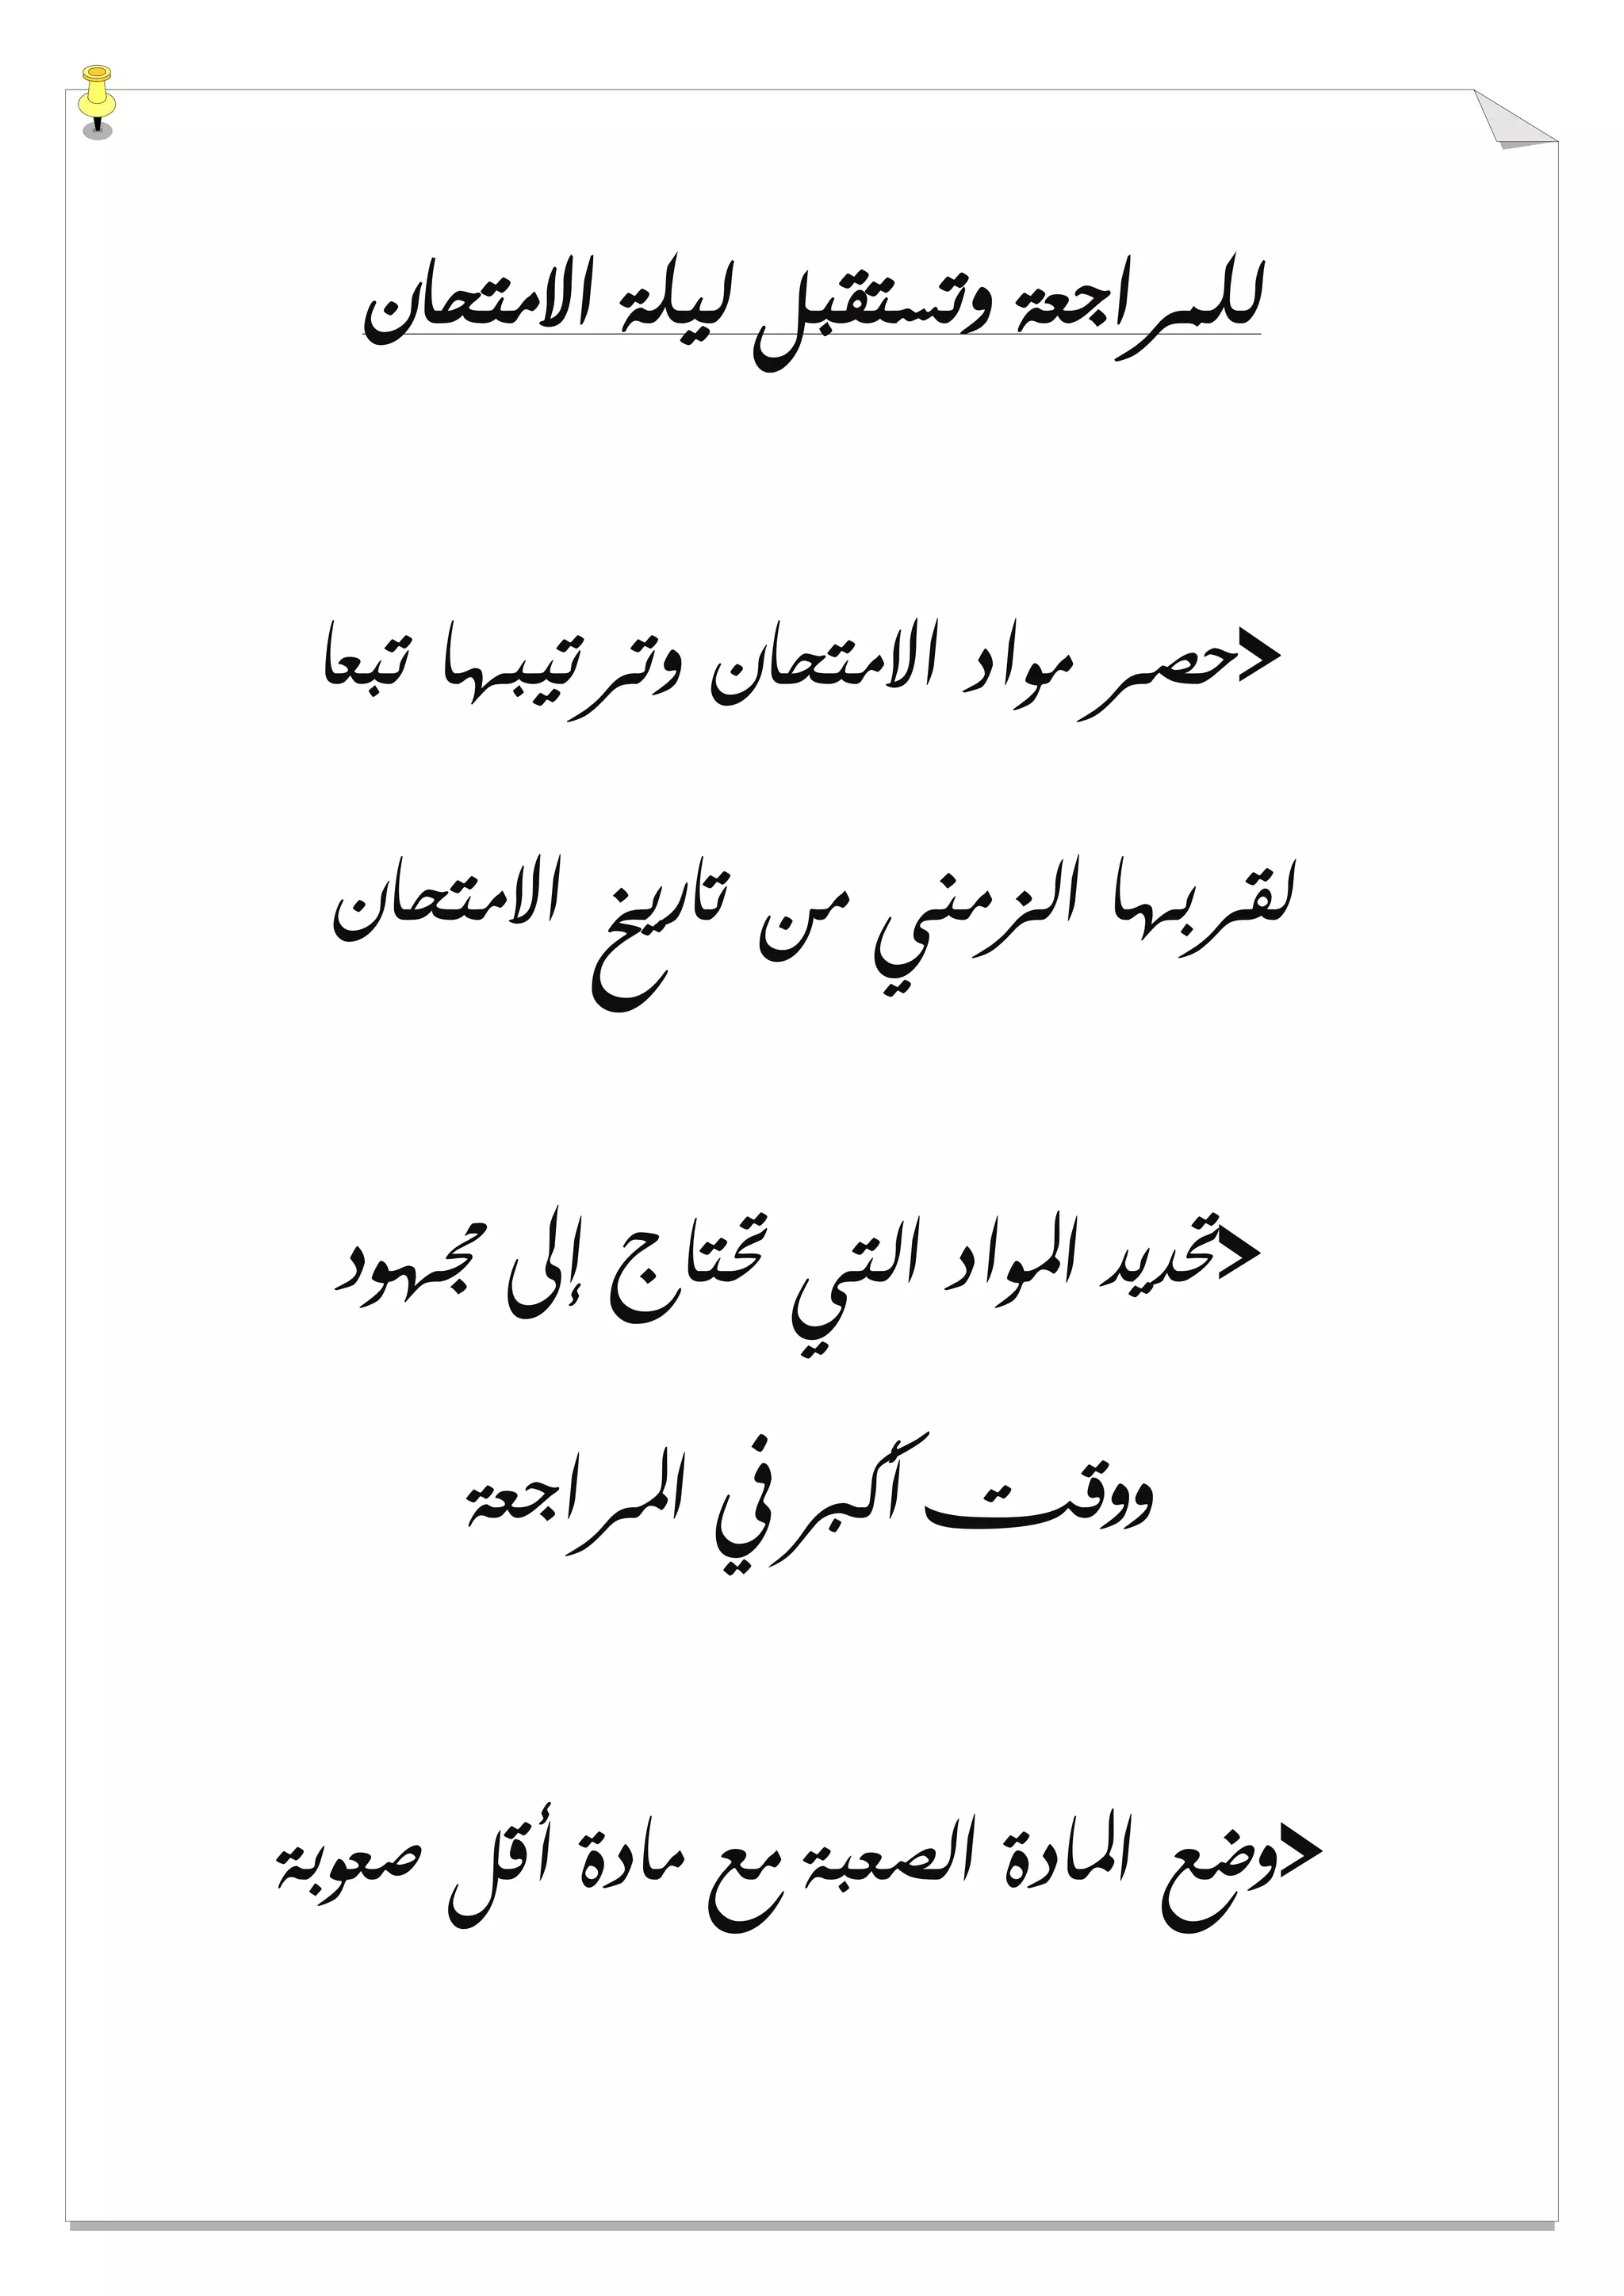 للمراجعة وتستقبل ليلة الامتحان
حصر مواد الامتحان وترتيبها تبعا
لقربها الزمني من تاريخ الامتحان
تحديد المواد التي تحتاج إلى مجهود
ووقت أكبر في المراجعة
وضع المادة الصعبة مع مادة أقل صعوبة